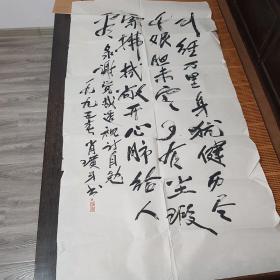 行经万里身犹健历尽
千艰胆未寒可有尘瑕
须拂拭敞开心肺给人
看 录谢觉哉诗自勉
一九九 肖 书